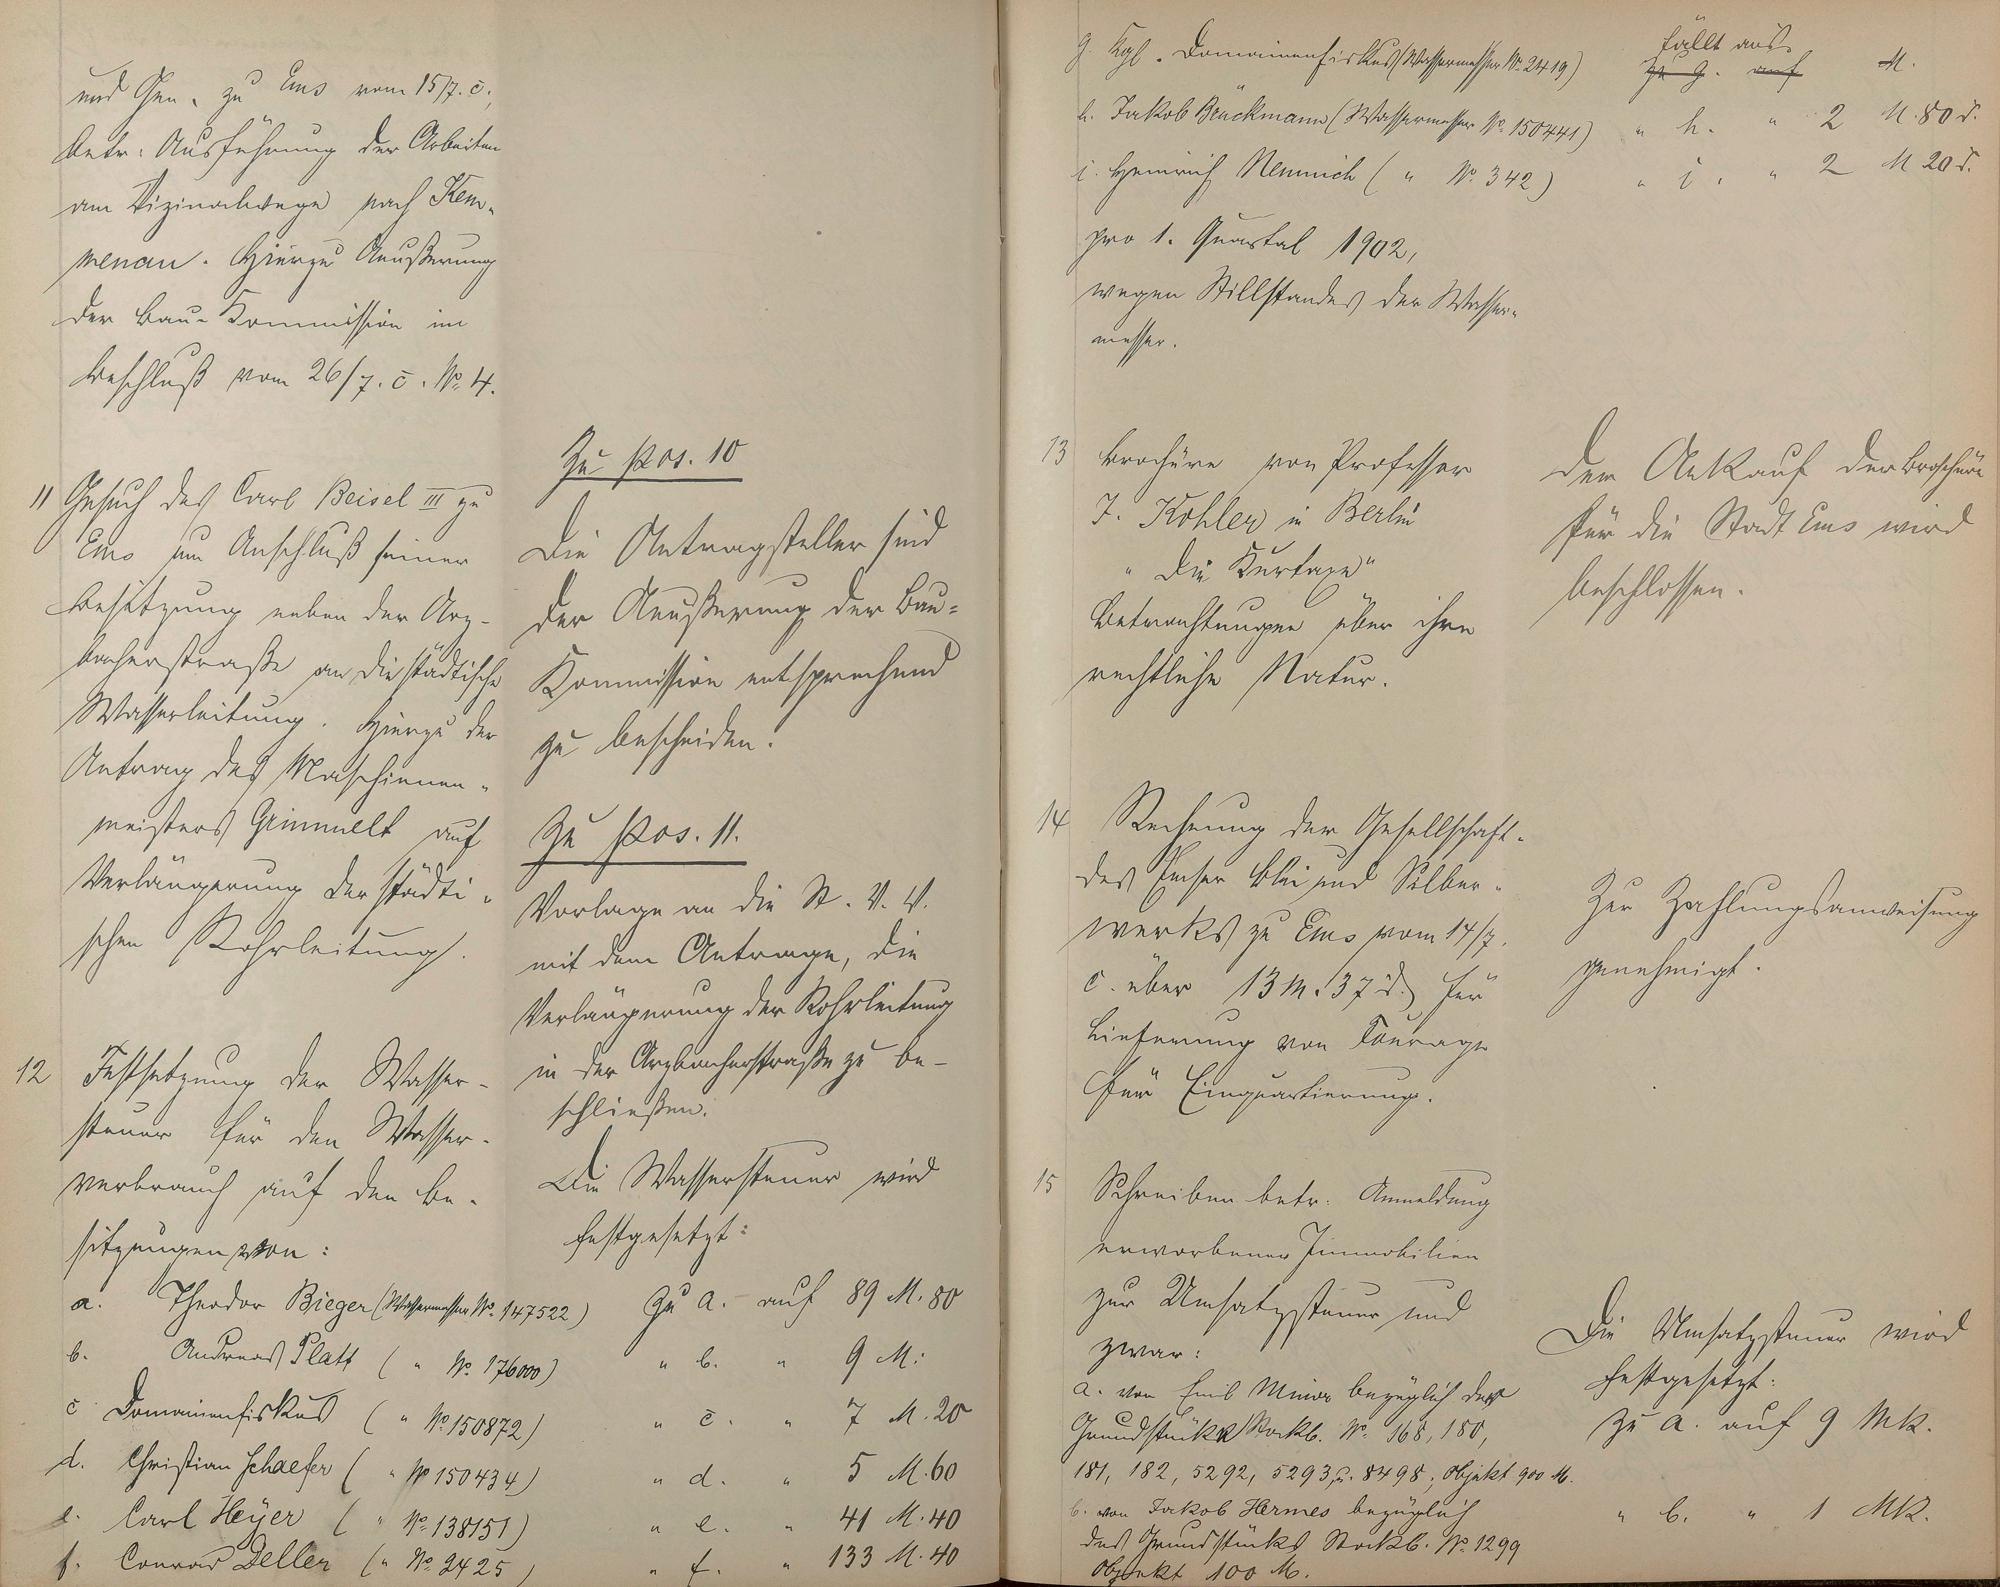 und Gen. zu Ems vom 15/7. c.,
betr. Ausführung der Arbeiten
am Vizinalwege nach Kem-
menau. Hierzu Aeußerung
der Bau-Kommission im
Beschluß vom 26/7. c. No. 4.
Zu pos. 10
Die Antragsteller sind
der Aeußerung der Bau-
Kommission entsprechend
zu bescheiden.
11 Gesuch des Carl Beisel III zu
Ems um Anschluß seiner
Besitzung neben der Arz-
bacherstraße an die städtische
Wasserleitung. Hierzu der
Antrag des Maschinen-
meisters Grimmelt auf
Verlängerung der städti-
schen Rohrleitung.
Zu pos. 11.
Vorlage an die St. V. V.
mit dem Antrage, die
Verlängerung der Rohrleitung
in der Arzbacherstraße zu be-
schließen.
12 Festsetzung der Wasser-
steuer für den Wasser-
verbrauch auf den Be-
sitzungen von:
Die Wassersteuer wird
festgesetzt:
a. Theodor Bieger (Wassermesser No. 147522) Zu a. auf 89 M. 80
b. Andreas Platt ( " No. 176000) " b. " 9 M.
c Domainenfiskus ( " No. 150872) " c. " 7 M. 20
d. Christian Schaefer ( " No 150434) " d. " 5 M. 60
e. Carl Heyer ( " No. 138151) " e. " 41 M. 40
f. Conrad Deller ( " No. 2425) " f. " 133 M. 40
g. Kgl. Domainenfiskus (Wassermesser No. 2419) fällt aus.
zu g. auf M.
h. Jakob Brückmann (Wassermesser No. 150441) " h. " 2 M. 80 d.
i. Heinrich Nemnich ( " No. 342) " i. " 2 M 20 d.
pro 1. Quartal 1902,
wegen Stillstandes der Wasser-
messer.
13 Brochüre von Professor
J. Kohler in Berlin
" Die Kurtaxe "
Betrachtungen über ihre
rechtliche Natur.
Der Ankauf der Broschüre
für die Stadt Ems wird
beschlossen.
14 Rechnung der Gesellschaft
des Emser Blei und Silber-
werks zu Ems vom 14/7.
c. über 13 M. 37 d. für
Lieferung von Fourage
für Einquartierung.
Zur Zahlungsanweisung
genehmigt.
15 Schreiben betr. Anmeldung
erworbener Immobilien
zur Umsatzsteuer und
zwar:
Die Umsatzsteuer wird
festgesetzt:
a. von Emil Minor bezüglich der
Grundstücke Stockb. No. 168, 180,
181, 182, 5292, 5293 u. 8498; Objekt 900 M.
zu a. auf 9 Mk.
b. von Jakob Hermes bezüglich
des Grundstücks Stockb. No. 1299
Objekt 100 M.
" b. " 1 Mk.